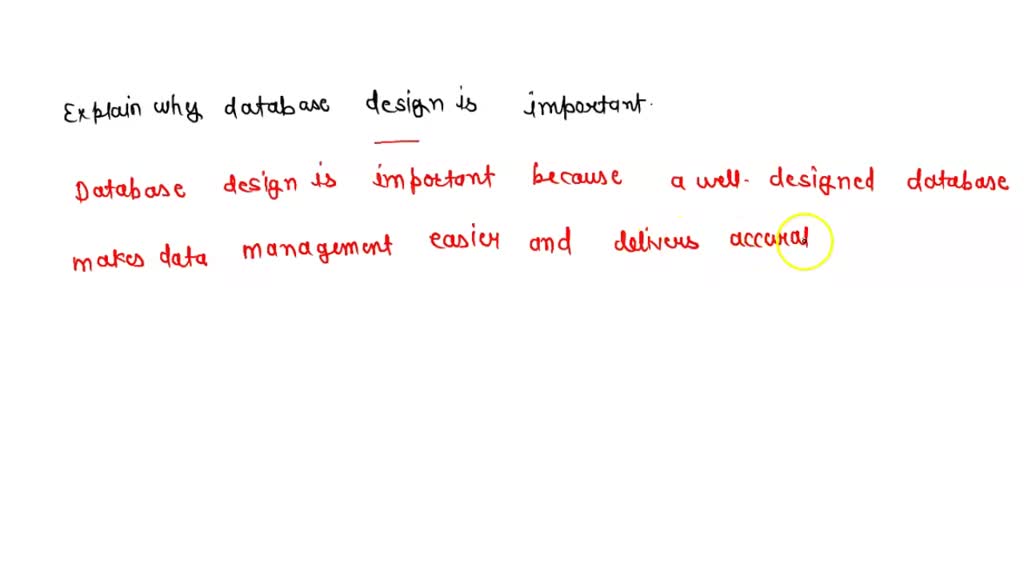 Explain why database design is important.
Database design is important because a well-designed database
makes data management easier and delivers accurat